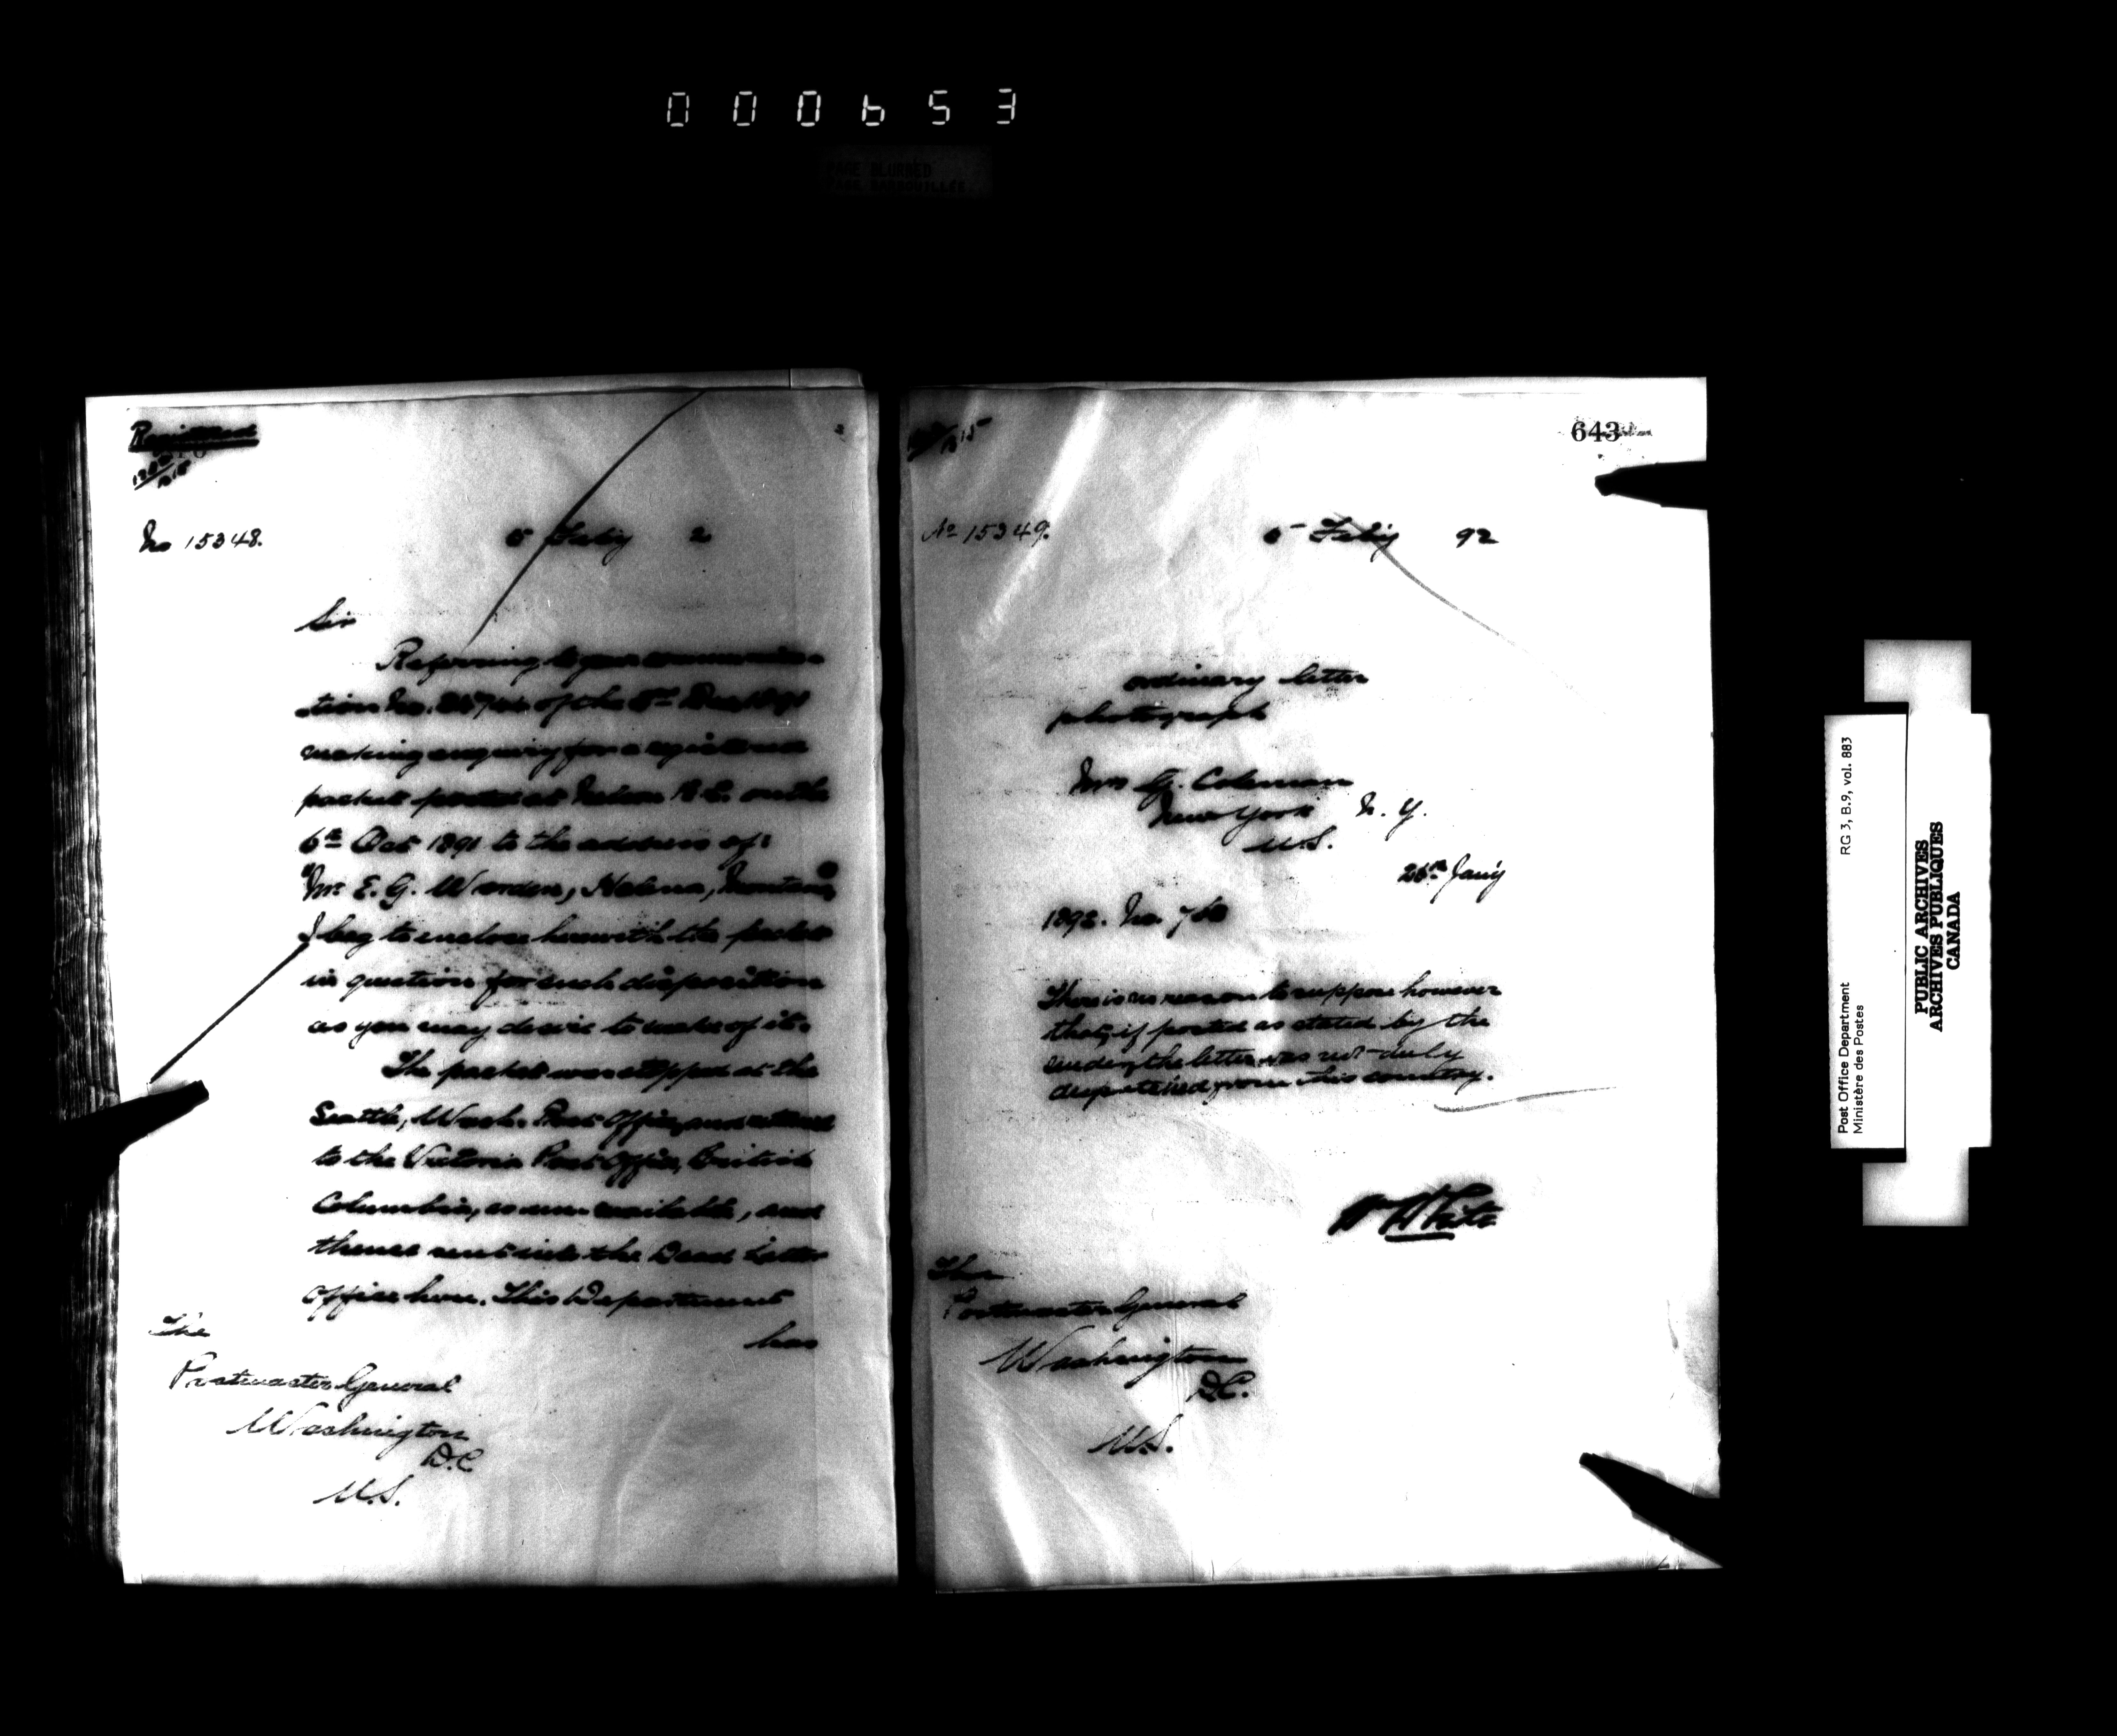 000653
PAGE BLURRED
Registered
No 15348.
5 Feby 2
Sir
Referring to your communica-
tion No. of the 5th Dec 1891
making enquiry for a registered
packet posted at Nelson B.C. on the
6th Oct 1891 to the address of:
"Mr. E. G. Worden, Helena, Montana,"
I beg to enclose herewith the packet
in question for such disposition
as you may desire to make of it.
The packet was stopped at the
Seattle, Wash. Post Office, and returned
to the Victoria Post Office, British
Columbia, as unmailable, and
thence sent into the Dead Letter
Office here. This Department
has
The
Postmaster General
Washington
D.C.
U.S.
643
No 15349.
5 Feby 92
ordinary letter
photograph
Mrs G. Coleman
New York N.Y.
U.S.
26th Jany
1892. No.
There is no reason to suppose however
that, if posted as stated by the
sender, the letter was not duly
despatched from this country.
W White
The
Postmaster General
Washington
D.C.
U.S.
Post Office Department RG 3, B.9, vol. 883
Ministère des Postes
PUBLIC ARCHIVES
ARCHIVES PUBLIQUES
CANADA